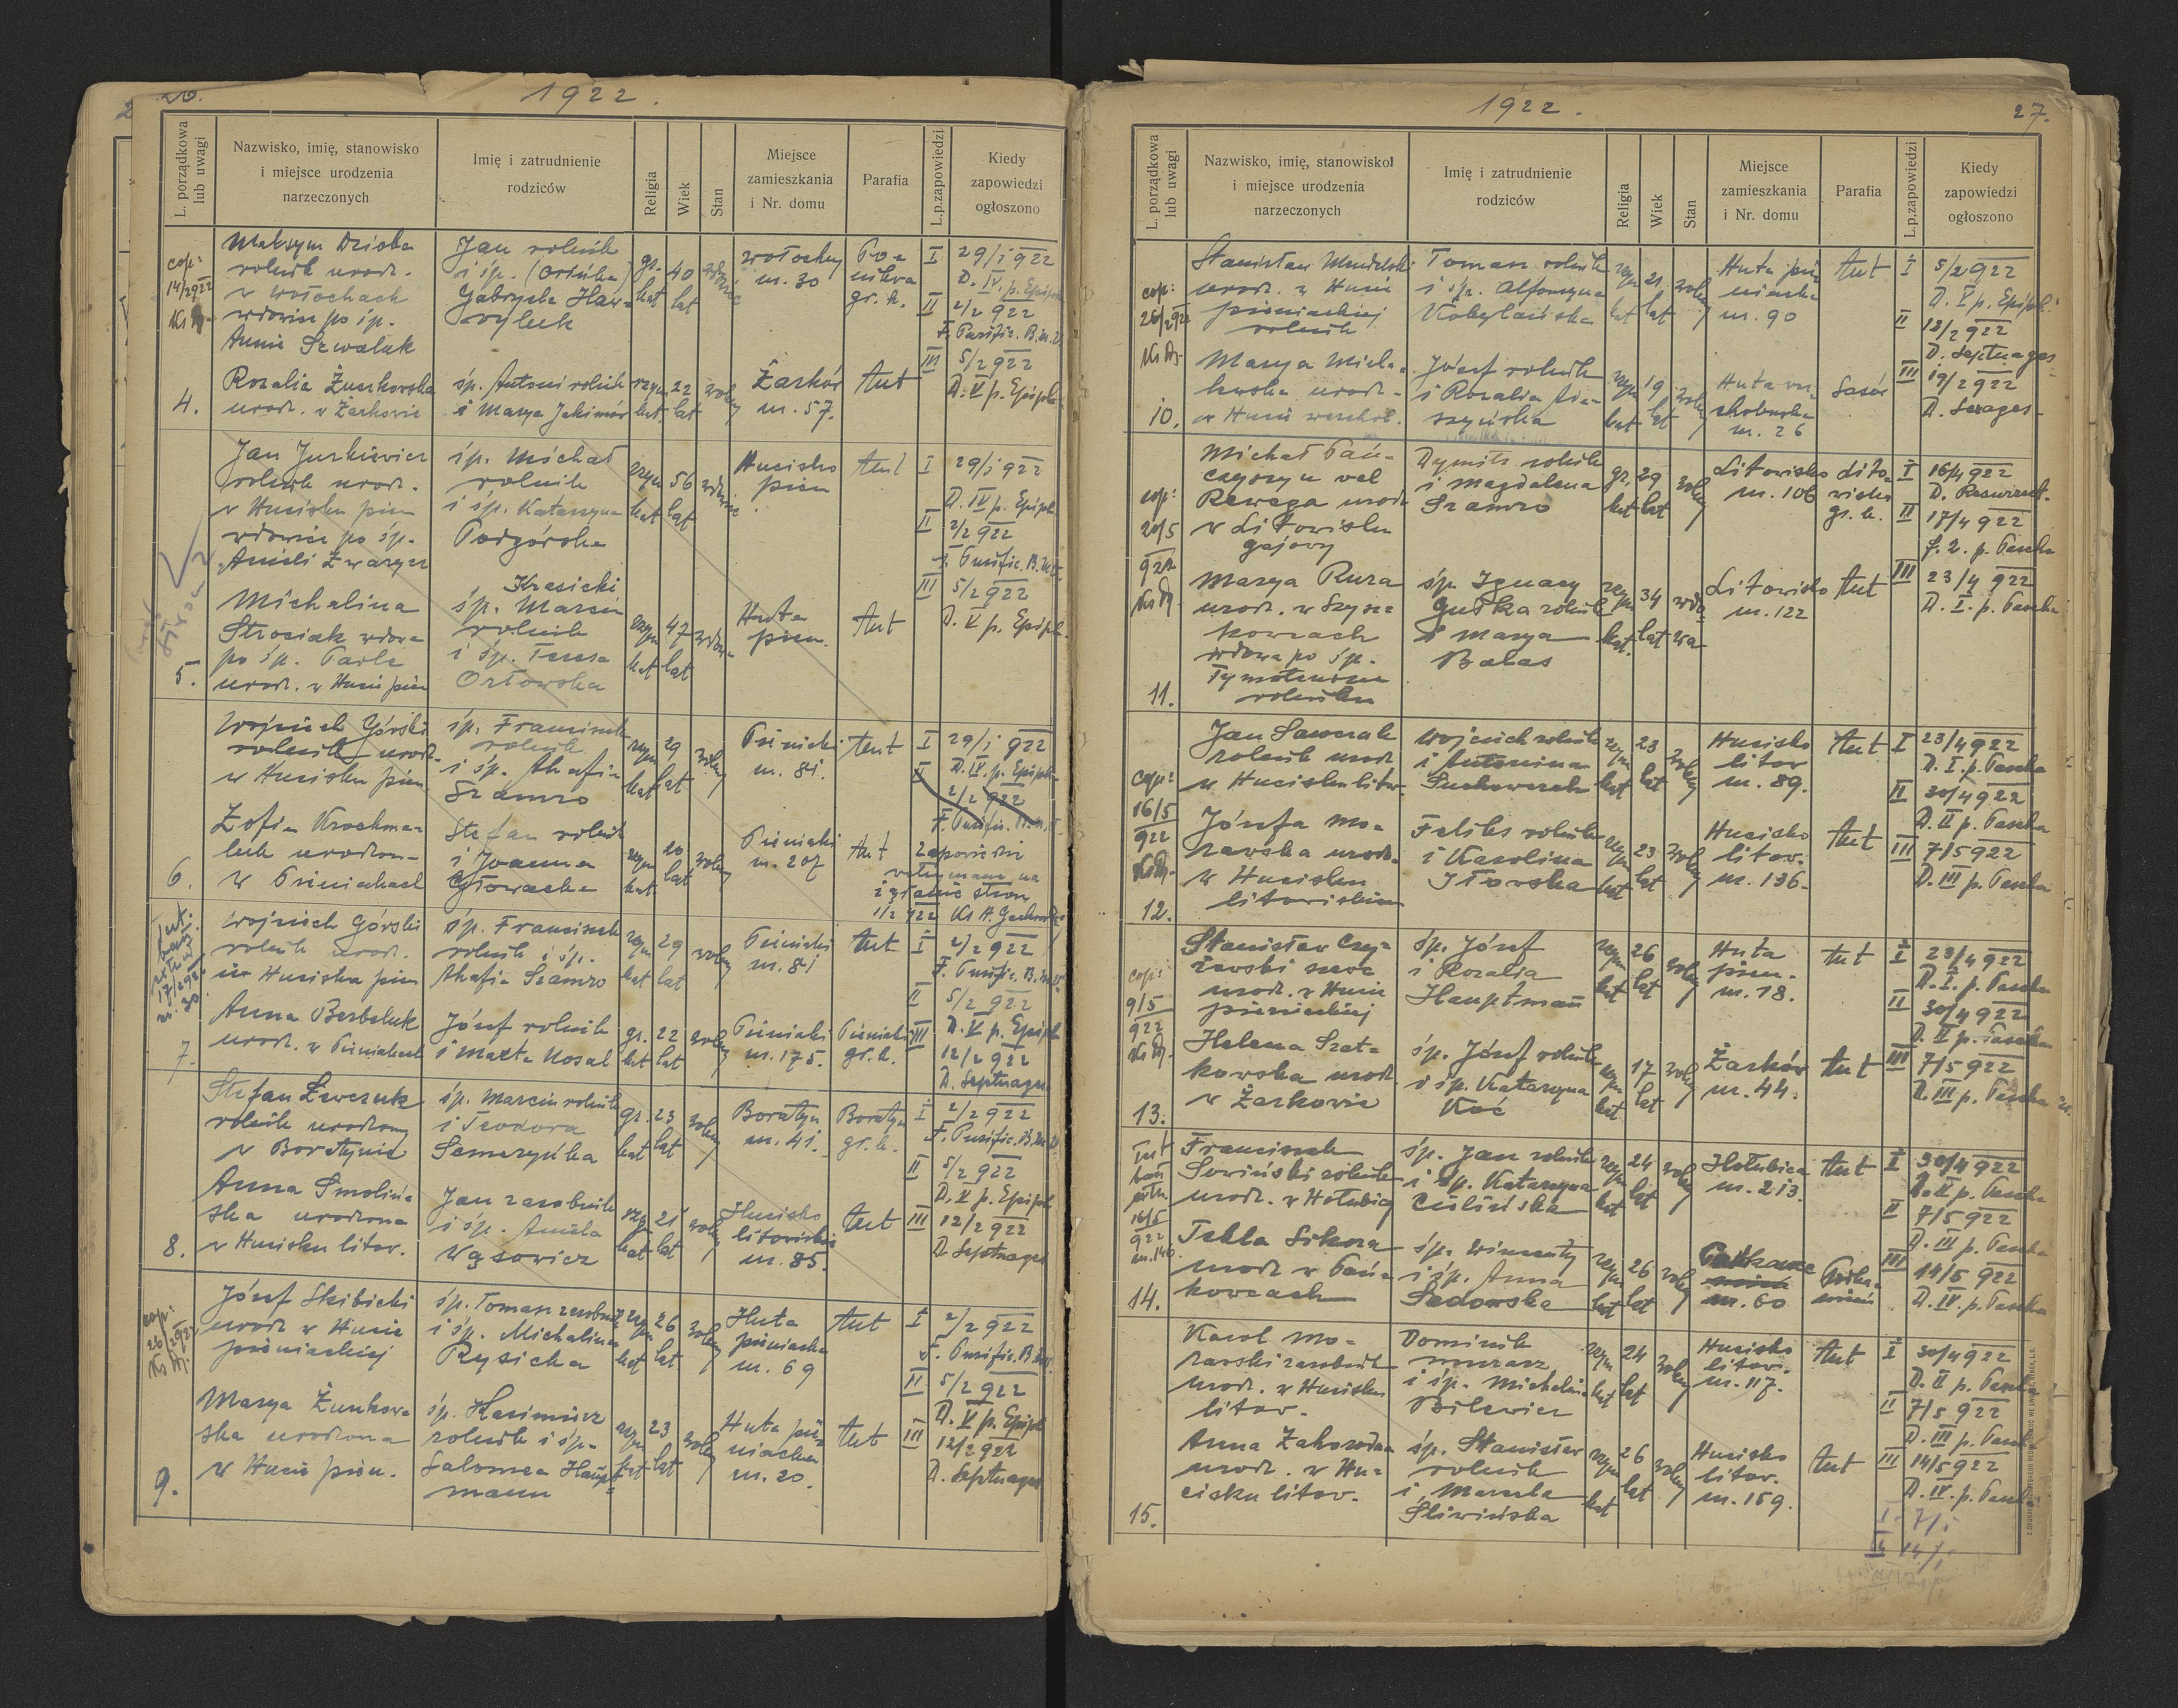 26.
1922.
L. porządkowa lub uwagi
Nazwisko, imię, stanowisko i miejsce urodzenia narzeczonych
Imię i zatrudnienie rodziców
Religia
Wiek
Stan
Miejsce zamieszkania i Nr. domu
Parafia
L.p.zapowiedzi
Kiedy zapowiedzi ogłoszono
cop:
14/2922
4.
Maksym Dzioba
rolnik urodz.
w Wołochach
wdowiec po śp.
Annie Szwaluk
Jan rolnik
i śp.
Gabryela Haw-
ryluk
gr. kat
40 lat
Wołochy
m. 30
gr. k.
I 29/1 922
D. IV. p. Epiph.
II 2/2 922
F. Purific. B.M.V.
III 5/2 922
D. V p. Epiph.
Rozalia Żurkowska
urodz. w Żarkowie
śp. Antoni rolnik
i Marya Jakimów
rzym kat.
22 lat
wolny
Żarków
m. 57.
tut
5.
Jan Jurkiewicz
rolnik urodz.
w Hucisku pien
wdowiec po śp.
Anieli Zwarycz
śp. Michał
rolnik
i śp. Katarzyna
Podgórska
rzym kat
56 lat
Hucisko
pien
tut
I 29/1 922
D. IV p. Epiph.
II 2/2 922
F. Purific. B.M.V.
III 5/2 922
D. V p. Epiph.
Michalina
Strociak wdowa
po śp. Pawle
urodz. w Hucie pien
Krasicki
śp. Marcin
rolnik
i śp. Teresa
Orłowska
rzym kat
47 lat
wdowa
Huta
pien.
tut
6.
Wojciech Górski
rolnik urodz.
w Hucisku pien
śp. Franciszek
rolnik
i śp. Agafia
Szamro
rzym kat
29 lat
wolny
Pieniaki
m. 81.
tut
I 29/1 922
D. IV. p. Epiph.
II 2/2 922
F. Purific. B.M.V.
Zofia Krochma-
luk urodzon-
w Pieniakach
Stefan rolnik
i Joanna
Głowacka
rzym kat
20 lat
wolny
Pieniaki
m. 207
tut
zapowiedzi
wstrzymane na
żądanie stron
1/2 922
7.
17/2922
m. 30
Wojciech Górski
rolnik urodz.
w Huciska pien
śp. Franciszek
rolnik i śp.
Agafia Szamro
rzym kat
29 lat
wolny
Pieniaki
m. 81
tut
I 2/2 922
F. Purific. B.M.V.
II 5/2 922
D. V p. Epiph
III 12/2 922
D. Septuages
Anna Berbeluk
urodz. w Pieniakach
Józef rolnik
i Marta Kosal
gr. kat
22 lat
wolny
Pieniaki
m. 175.
Pieniaki
gr. k.
8.
Stefan Szewczuk
rolnik urodzony
w Boratynie
śp. Marcin rolnik
i Teodora
Semeryńka
gr. kat
23 lat
wolny
Boratyn
m. 41.
Boratyn
gr. k.
I 2/2 922
F. Purific. B.M.V.
II 5/2 922
D. V p. Epiph
III 12/2 922
D. Septuages
Anna Smoliń-
ska urodzona
w Hucisku litow.
Jan zarobnik
i śp. Aniela
Wąsowicz
rzym kat
21 lat
wolny
Hucisko
litowiskie
m. 85.
tut
9.
cop:
26/2922
Józef Skibicki
urodz w Hucie
pieniackiej
śp. Toman zarobnik
i śp. Michalina
Rysicka
rzym kat
26 lat
wolny
Huta
pieniacka
m. 69
tut
I 2/2 922
F. Purific. B.M.V.
II 5/2 922
D. V p. Epiph
III 12/2 922
D. Septuages
Marya Żurkow-
ska urodzona
w Hucie pien.
śp. Kazimierz
rolnik i śp.
Salomea Haupt-
mann
rzym kat
23 lat
wolny
Huta pie-
niacka
m. 20.
tut
1922.
27.
L. porządkowa lub uwagi
Nazwisko, imię, stanowisko i miejsce urodzenia narzeczonych
Imię i zatrudnienie rodziców
Religia
Wiek
Stan
Miejsce zamieszkania i Nr. domu
Parafia
L.p.zapowiedzi
Kiedy zapowiedzi ogłoszono
10.
cop:
26/2922
Stanisław
urodz. w Hucie
pieniackiej
rolnik
Toman rolnik
i śp. Alfonsyna
Kobylańska
rzym kat
21 lat
wolny
Huta pie-
niacka
m. 90
tut
I 5/2 922
D. V p. Epiph.
II 12/2 922
D. Septuages
III 19/2 922
D. Sexages-
Marya Micha-
urodz.
w Hucie werchob.
Józef rolnik
i Rozalia
rzym kat
19 lat
wolny
Huta wer-
chobuska
m. 26
Sasów
11.
cop:
20/5
922
Michał Pań-
czyszyn vel
Rewega urodz
w Litowisku
gajowy
Dymitr rolnik
i Magdalena
Szamro
gr. kat
29 lat
wolny
Litowisko
m. 106
Lito-
wisko
gr. k.
I 16/4 922
D. Resurrect.
II 17/4 922
f. 2. p. Pascha
III 23/4 922
D. I. p. Pascha
Marya Rura
urodz. w Szysz-
kowcach
wdowa po śp.
rolniku
śp. Ignacy
Gutka rolnik
i Marya
Bałas
rzym kat.
34 lat
wdowa
Litowisko
m. 122
tut
12.
cop:
16/5
922
Jan Sawczak
rolnik urodz
w Hucisku litow.
Wojciech rolnik
i Antonina
rzym kat
23 lat
wolny
Hucisko
litow
m. 89.
tut
I 23/4 922
D. I. p. Pascha
II 30/4 922
D. II p. Pascha
III 7/5 922
D. III p. Pascha
Józefa Mo-
rawska urodz.
w Hucisku
litowiskiem
Feliks rolnik
i Karolina
Iłowska
rzym kat
23 lat
wolny
Hucisko
litow.
m. 136.
tut
13.
cop:
9/5
922
Stanisław Czy-
żewski szewc
urodz. w Hucie
pieniackiej
śp. Józef
i Rozalia
Hauptman
rzym kat
26 lat
wolny
Huta
pien.
m. 18.
tut
I 23/4 922
D. I. p. Pascha
II 30/4 922
D. II p. Pascha
III 7/5 922
D. III p. Pascha
Helena Szat-
kowska urodz.
w Żarkowie
śp. Józef rolnik
i śp. Katarzyna
Koć
rzym kat
17 lat
wolny
Żarków
m. 44.
tut
14.
16/5
922
m. 140.
Franciszek
Sowiński rolnik
urodz. w Hołubicy
śp. Jan rolnik
i śp. Katarzyna
Culińska
rzym kat
24 lat
wolny
Hołubica
m. 213.
tut
I 30/4 922
D. II p. Pascha
II 7/5 922
D. III p. Pascha
III 14/5 922
D. IV. p. Pascha
Tekla Sikora
urodz w Pań-
kowcach
śp. Wincenty
i śp. Anna
Sadowska
rzym kat
26 lat
wolny
m. 60
15.
Karol Mo-
rawski zarobnik
urodz. w Hucisku
litow.
Dominik
murarz
i śp. Michalina
Bilewicz
rzym kat
24 lat
wolny
Hucisko
litowi.
m. 117.
tut
I 30/4 922
D. II p. Pascha
II 7/5 922
D. III p. Pascha
III 14/5 922
D. IV. p. Pascha
Anna Zahorodna
urodz. w Hu-
cisku litow.
śp. Stanisław
rolnik
i Marcela
Śliwińska
rzym kat
26 lat
wolny
Hucisko
litow.
m. 159.
tut
I 7/1
II 14/1